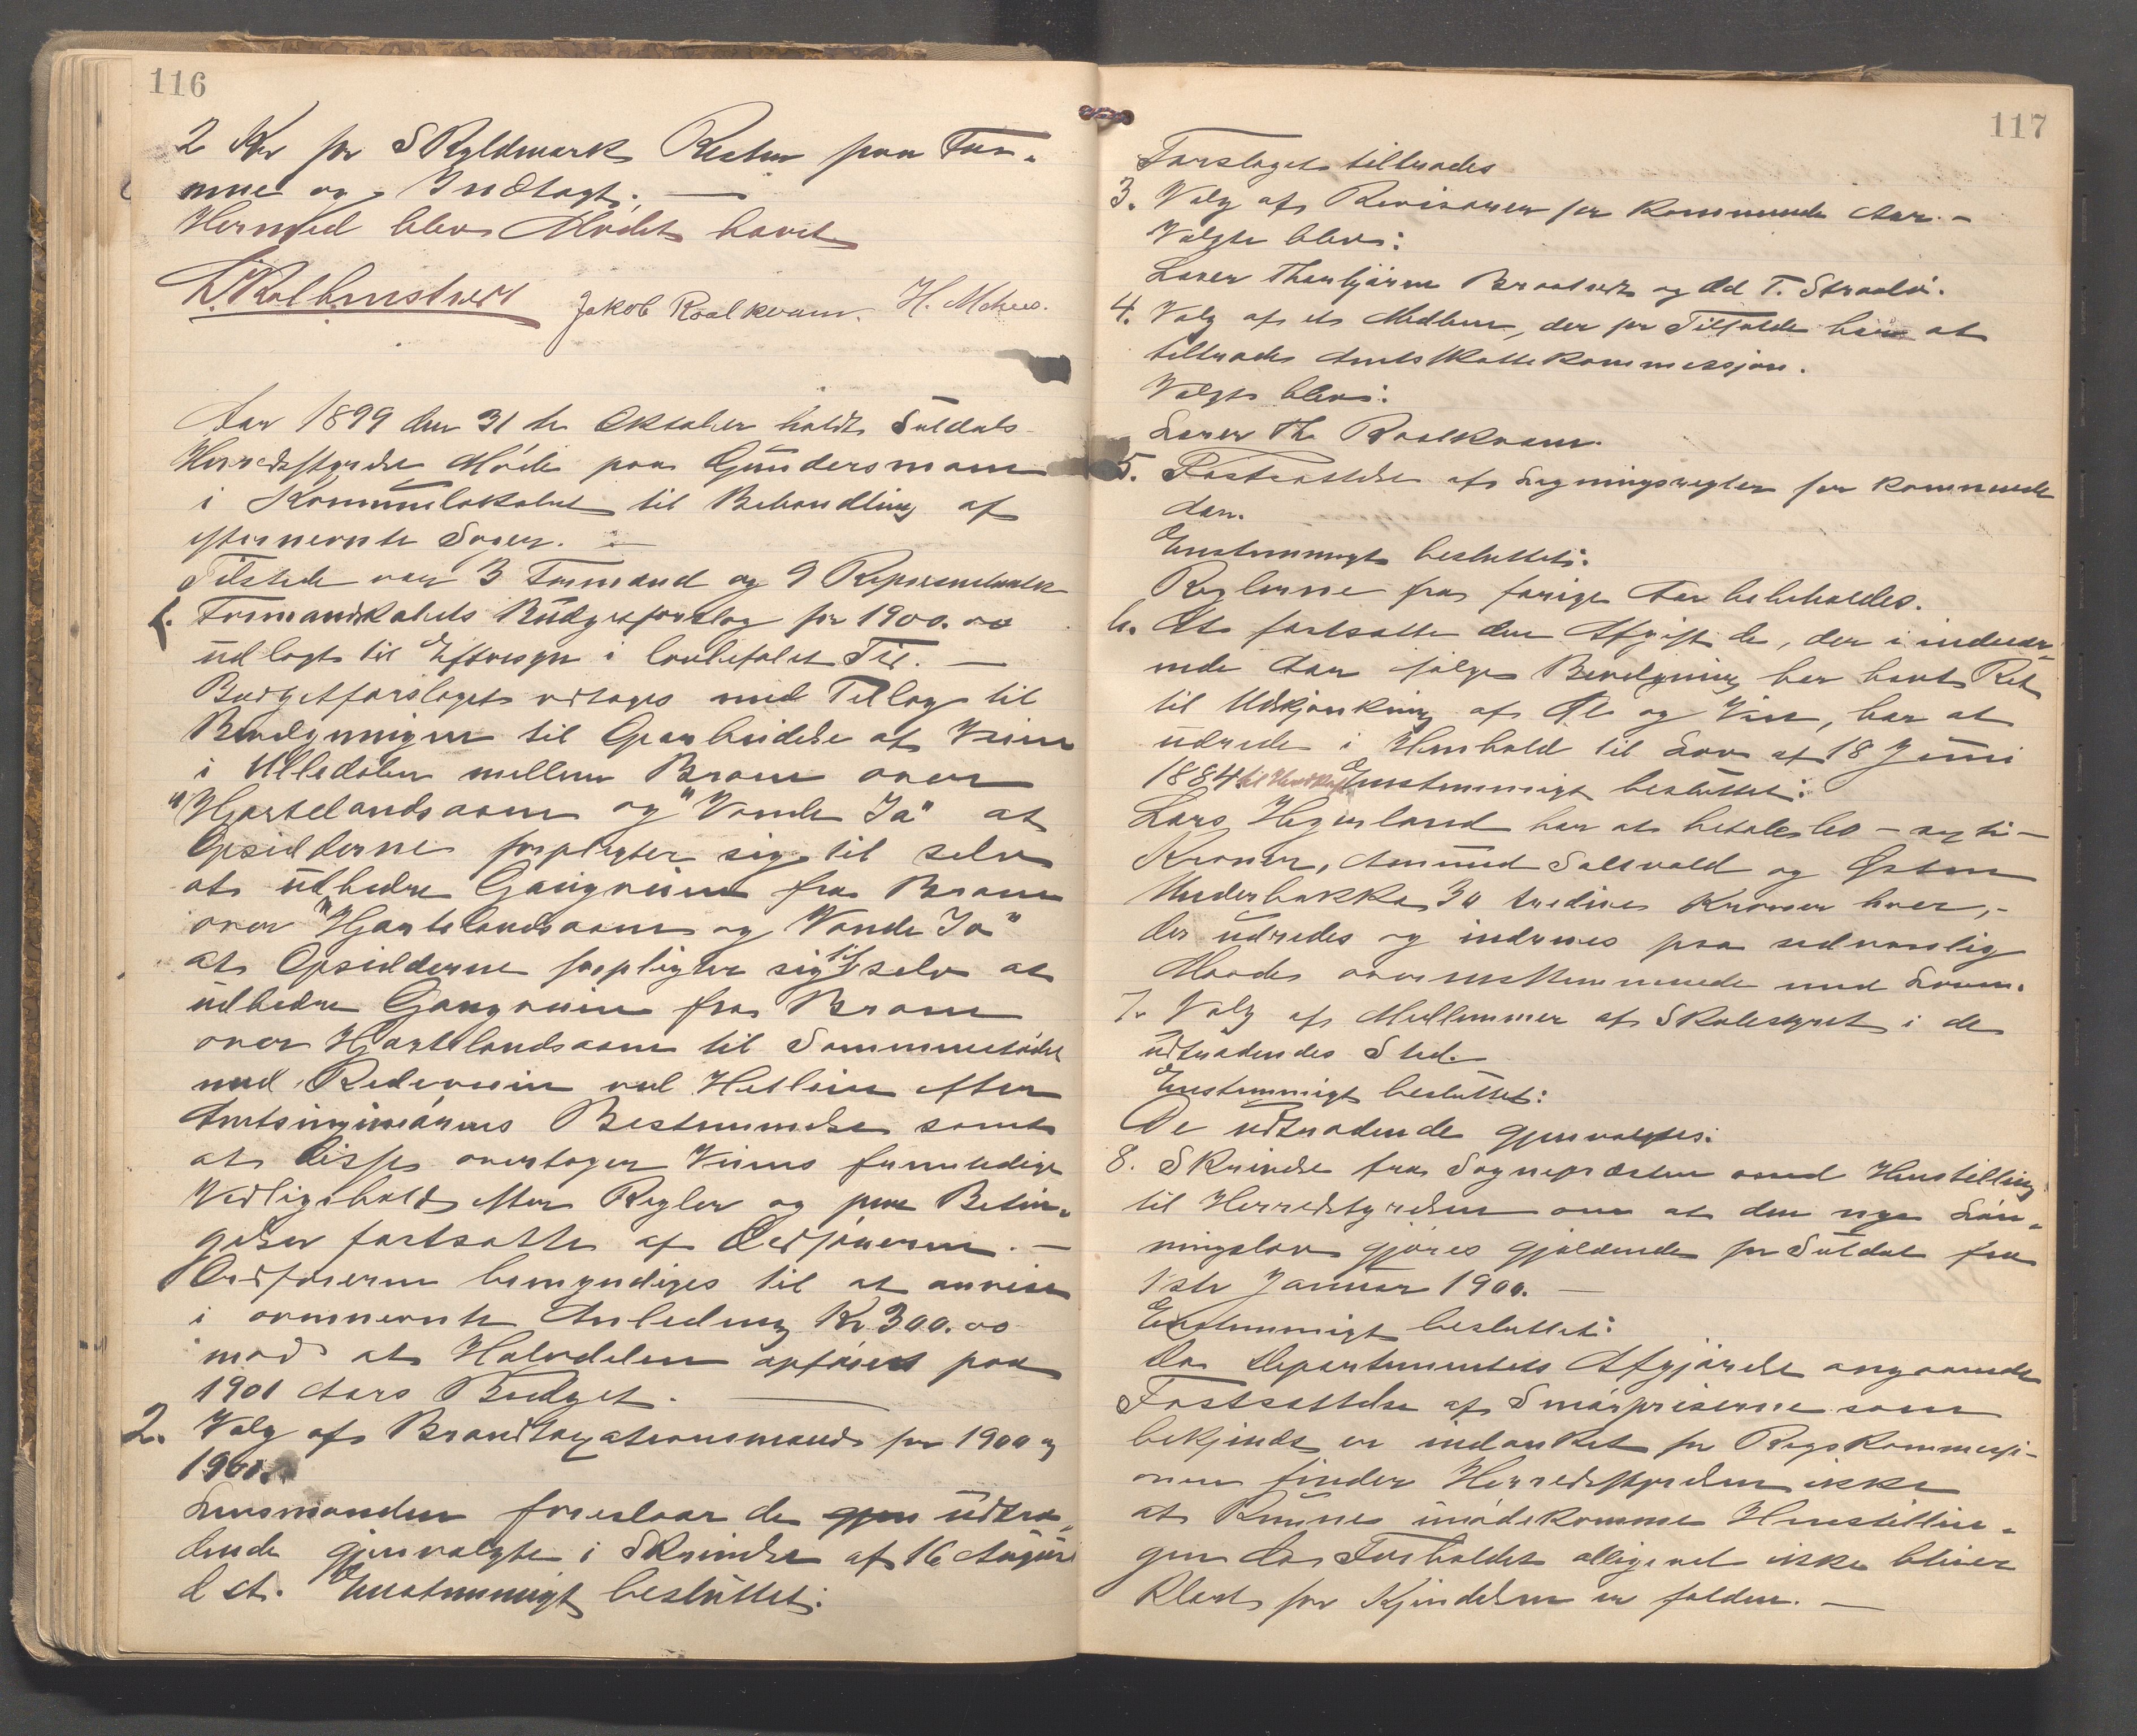 116
2 Kr pr Skyldmark Resten paa For-
mue og Indtægt.
Hermed blev Mødet hævet
Jakob Roalkvam. H.
Aar 1899 den 31 te Oktober holdt Suldals
Herredsstyrelse Møde paa Gundersmoen
i Kommunelokalet til Behandling af
efternevnte Sager. —
Tilstede var 3 Formænd og 9 Repræsentanter
1. Formandskabets Budgetforslag for 1900.00
udlagt til Eftersyn i lovbefalet Tid. —
Budgetforslaget vedtages med Tillæg til
Bevilgningen til Oparbeidelse af Veien
i Ulledalen mellem Broen over
"Hjortelandsaaen og "Vonde Ja" at
Opsidderne forpligter sig til selv
at udbedre Gangveien fra Broen
over "Hjortelandsaaen og Vonde Ja"
at Opsidderne forpligter sig til selv at
udbedre Gangveien fra Broen
over Hjortelandsaaen til Sommerstødet
med Rideveien ved Hetlein efter
Amtsingeniørens Bestemmelse samt
at disse overtager Veiens fremtidige
Vedligehold efter Regler og paa Betin-
gelser fastsatte af Ordføreren. —
Ordføreren bemyndiges til at anvise
i ovennevnte Anledning Kr 300.00
mod at Halvdelen opføres paa
1901 Aars Budget. —
2. Valg af Brandtaxationsmænd for 1900 og
1901.
Lensmanden foreslaar de gjen udtræ-
dende gjenvalgte i Skrivelse af 16 August
d.A. Enstemmigt besluttet:
117
Forslaget tiltrædes
3. Valg af Revisorer for kommende Aar. —
Valgte blev:
Lærer Thorbjørn Braatveit og Od T. Straabø.
4. Valg af et Medlem, der for Tilfælde har at
tiltræde Amtsskattekommissjon.
Valgt blev:
Lærer Th. Roalkvam.
5. Fastsættelse af Ligningsregler for kommende
Aar.
Enstemmigt besluttet:
Reglerne fra forige Aar bebeholdes.
6. At fastsætte den Afgift de, der i indevær-
ende Aar ifølge Bevilgning har havt Ret
til Udskjænkning af Øl og Vin, har at
udrede i Henhold til Lov af 18 Juni
1884 Enstemmigt besluttet:
Lars Hegerland har at betale 80 – otti –
Kroner, Amund Solvold og Østen
Underbakke 30 tredive Kroner hver, –
der udredes og inddrives paa sedvanlig
Maade overensstemmende med Loven.
7. Valg af Medlemmer af Skolestyret i de
udtrædendes Sted.
Enstemmigt besluttet:
De udtrædende gjenvalgtes.
8. Skrivelse fra Sognepræsten med Henstilling
til Herredstyrelsen om at den nye Løn-
ningslov gjøres gjældende for Suldal fra
1ste Januar 1900. —
Enstemmigt besluttet:
Da Departementets Afgjørelse angaaende
Fastsættelse af Smørpriserne som
bekjendt er indanket for Rigskommissi-
onen finder Herredsstyrelsen ikke
at kunne imødekomme Henstillin-
gen da Forholdet alligevel ikke bliver
klart før Kjendelsen er falden. —